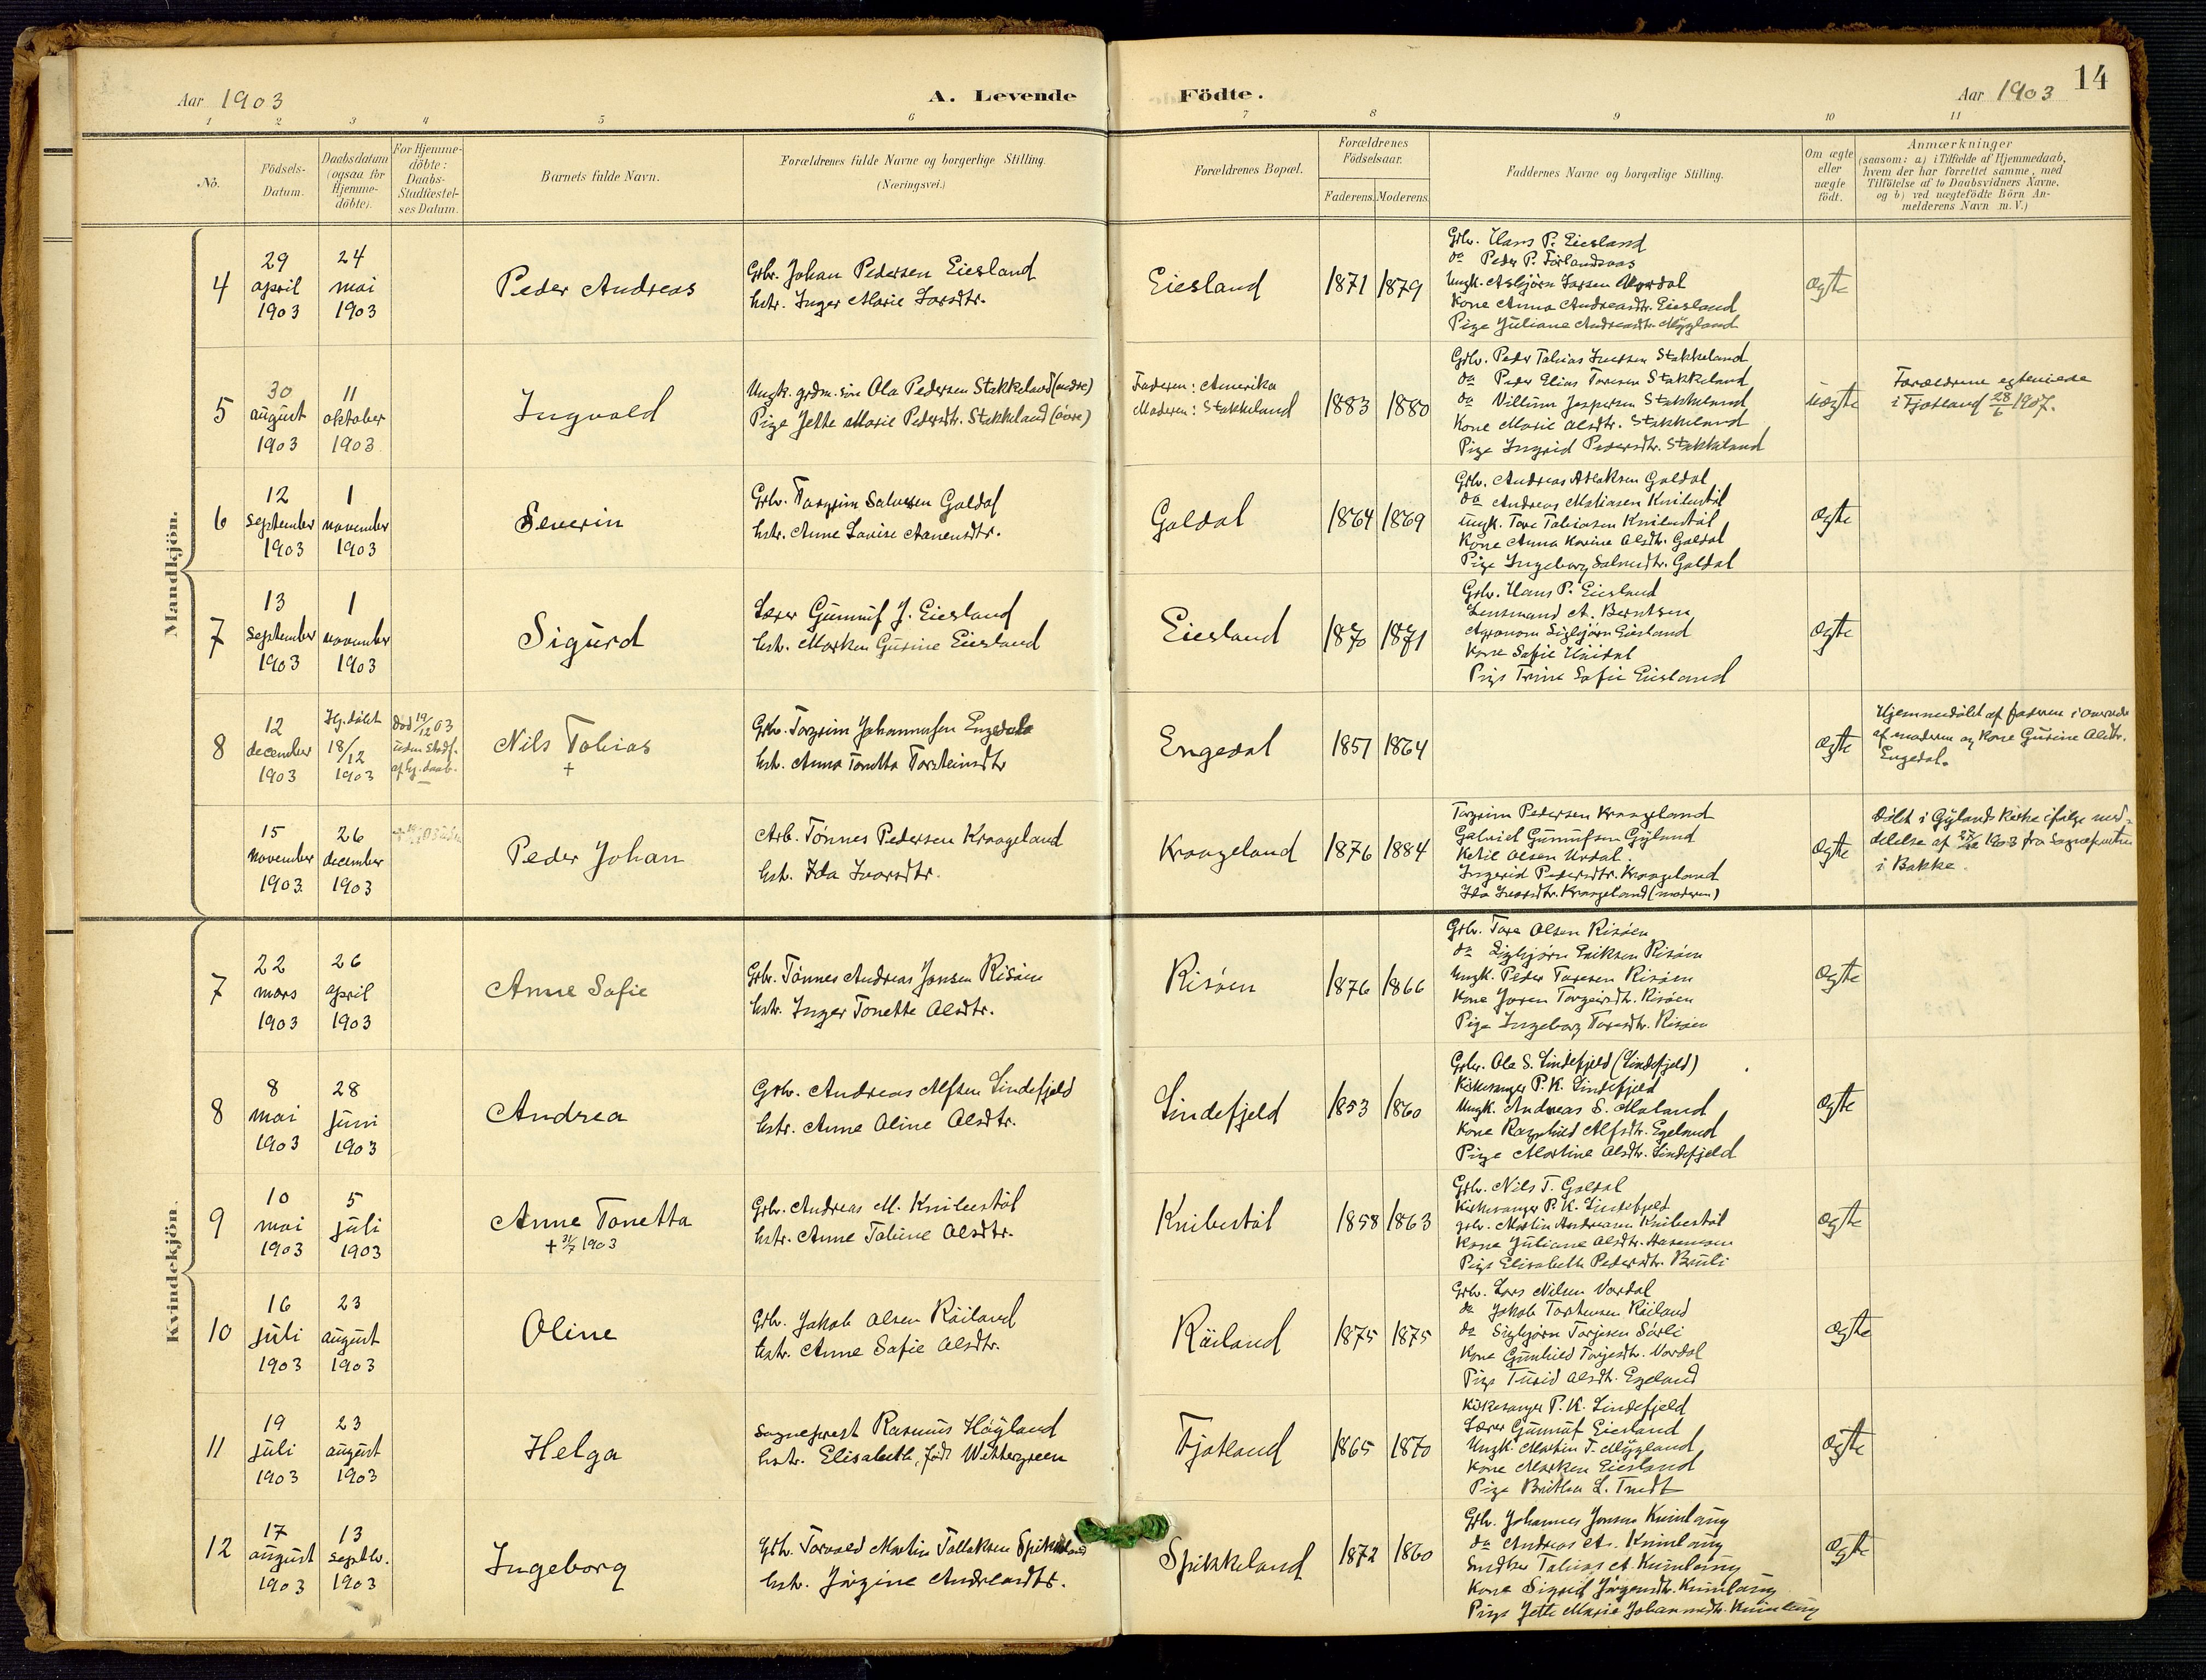 Aar 1903
A. Levende
Födte.
Aar 1903
14
1
2
3
4
5
6
7
8
9
10
11
No.
Födsels-
Datum.
Daabsdatum
(ogsaa for
Hjemme-
döbte).
For Hjemme-
döbte:
Daabs-
Stadfæstel-
ses Datum.
Barnets fulde Navn.
Forældrenes fulde Navne og borgerlige Stilling.
(Næringsvei.)
Forældrenes Bopæl.
Forældrenes
Födselsaar.
Faderens.
Moderens.
Faddernes Navne og borgerlige Stilling.
Om ægte
eller
uægte
födt.
Anmærkninger
(saasom: a) i Tilfælde af Hjemmedaab,
hvem der har forrettet samme, med
Tilföielse af to Daabsvidners Navne,
og b) ved uægtefödte Börn An-
melderens Navn m. V.)
Mandkjön.
4
29
april
1903
24
mai
1903
Peder Andreas
Grbr. Johan Pedersen Eiesland
hstr. Inger Marie Larsdtr.
Eiesland
1871
1879
Grbr. Hans P. Eiesland
do Peder P.
Ungk. Asbjörn Larsen
Kone Anna Andreasdtr. Eiesland
Pige Juliane Andreasdtr. Mygland
ægte
5
30
august
1903
11
oktober
1903
Ingvald
Ungk. grdm. sön Ola Pedersen Stakkeland (nedre)
Pige Jette Marie Pedersdtr. Stakkeland (övre)
Faderen: Amerika
Moderen: Stakkeland
1883
1880
Grbr. Peder Tobias Stakkeland
do Peder Elias Toresen Stakkeland
do Villum Jespersen Stakkeland
Kone Marie Olsdtr. Stakkeland
Pige Ingrid Pedersdtr. Stakkeland
uægte
Forældrene
i Fjotland 28/6 1907.
6
12
september
1903
1
november
1903
Severin
Grbr. Torgrim Salvesen Galdal
hstr. Anne Lovise Aanensdtr.
Galdal
1864
1869
Grbr. Andreas Galdal
do Andreas Matiasen Knibestöl
ungk. Tore Tobiasen Knibestöl
Kone Anna Karine Olsdtr. Galdal
Pige Ingeborg Salvesdtr. Galdal
ægte
7
13
september
1903
1
november
1903
Sigurd
Lærer Gunnuf J. Eiesland
hstr. Marken Gurine Eiesland
Eiesland
1870
1871
Grbr. Hans P. Eiesland
Lensmand A. Berntsen
Agronom Sigbjörn Eiesland
Kone Sofie
Pige Trine Sofie Eiesland
ægte
8
12
december
1903
Hj. döbt
18/12
1903
död 19/12 03
uden Stadf.
af hj. daab.
Nils Tobias
+
Grbr. Torgrim Johannesen Engedal
hstr. Anna Tonetta Torsteinsdtr
Engedal
1851
1864
ægte
Hjemmedöbt af faderen i overvær
af moderen og Kone Gurine Olsdtr.
Engedal.
15
november
1903.
26
december
1903
Peder Johan
Arb. Tönnes Pedersen Kraageland
hst. Ida Ivarsdtr.
Kraageland
1876
1884
Torgrim Pedersen Kraageland
Gabriel Gunnufsen Gyland
Ketil Olsen Urdal.
Ingerid Pedersdtr. Kraageland
Ida Ivarsdtr. Kraageland (moderen)
ægte
Döbt i Gylands Kirke ifölge med-
delelse af 1903 fra Sognepresten
i Bakke.
Kvindekjön.
7
22
mars
1903
26
april
1903
Anne Sofie
Grbr. Tönnes Andreas Jonsen Risöen
hstr. Inger Tonette Olsdtr.
Risöen
1876
1866
Grbr. Tore Olsen Risöen
do Sigbjörn Eriksen Risöen
Ungk. Peder Toresen Risöen
Kone Joren Torgeirsdtr. Risöen
Pige Ingeborg Toresdtr. Risöen
ægte
8
8
mai
1903
28
juni
1903
Andrea
Grbr. Andreas Alfsen Lindefjeld
hstr. Anne Oline Olsdtr.
Lindefjeld
1853
1860
Grbr. Ola S. Lindefjeld (Lindefjeld)
Kirkesanger P. K. Lindefjeld
Ungk. Andreas S. Moland
Kone Ragnhild Alfsdtr. Egeland
Pige Martine Olsdtr. Lindefjeld
ægte
9
10
mai
1903
5
juli
1903
Anne Tonetta
+ 31/7 1903
Grbr. Andreas M. Knibestöl
hstr. Anne Tobine Olsdtr.
Knibestöl
1858
1863
Grbr. Nils T. Galdal
Kirkesanger P. K. Lindefjeld
grbr. Martin Andreasen Knibestöl
Kone Juliane Olsdtr.
Pige Elisabeth Pedersdtr. Bruli
ægte
10
16
juli
1903
23
august
1903
Oline
Grbr. Jakob Olsen Röiland
hstr. Anne Sofie Olsdtr.
Röiland
1875
1875
Grbr. Lars Nilsen Vordal
do Jakob Torstensen Röiland
do Sigbjörn Torjesen Sörli
Kone Gunhild Torjesdtr. Vordal
Pige Turid Olsdtr. Egeland
ægte
11
19
juli
1903
23
august
1903
Helga
Sogneprest Rasmus Höyland
hstr. Elisabeth, född Wettergreen
Fjotland
1865
1870
Kirkesanger P. K. Lindefjeld
Lærer Gunnuf Eiesland
Ungk. Martin T. Mygland
Kone Marken Eiesland
Pige L. Tvedt
ægte
12
17
august
1903
13
septbr.
1903
Ingeborg
Grbr. Torvald Martin Tollaksen Spikkeland
hstr. Jörgine Andreasdtr.
Spikkeland
1872
1860
Grbr. Johannes Jonsen Kvinlaug
do Andreas A. Kvinlaug
Snedker Tobias A. Kvinlaug
Kone Sigrid Jörgensdtr. Kvinlaug
Pige Jette Marie Johannesdtr. Kvinlaug
ægte